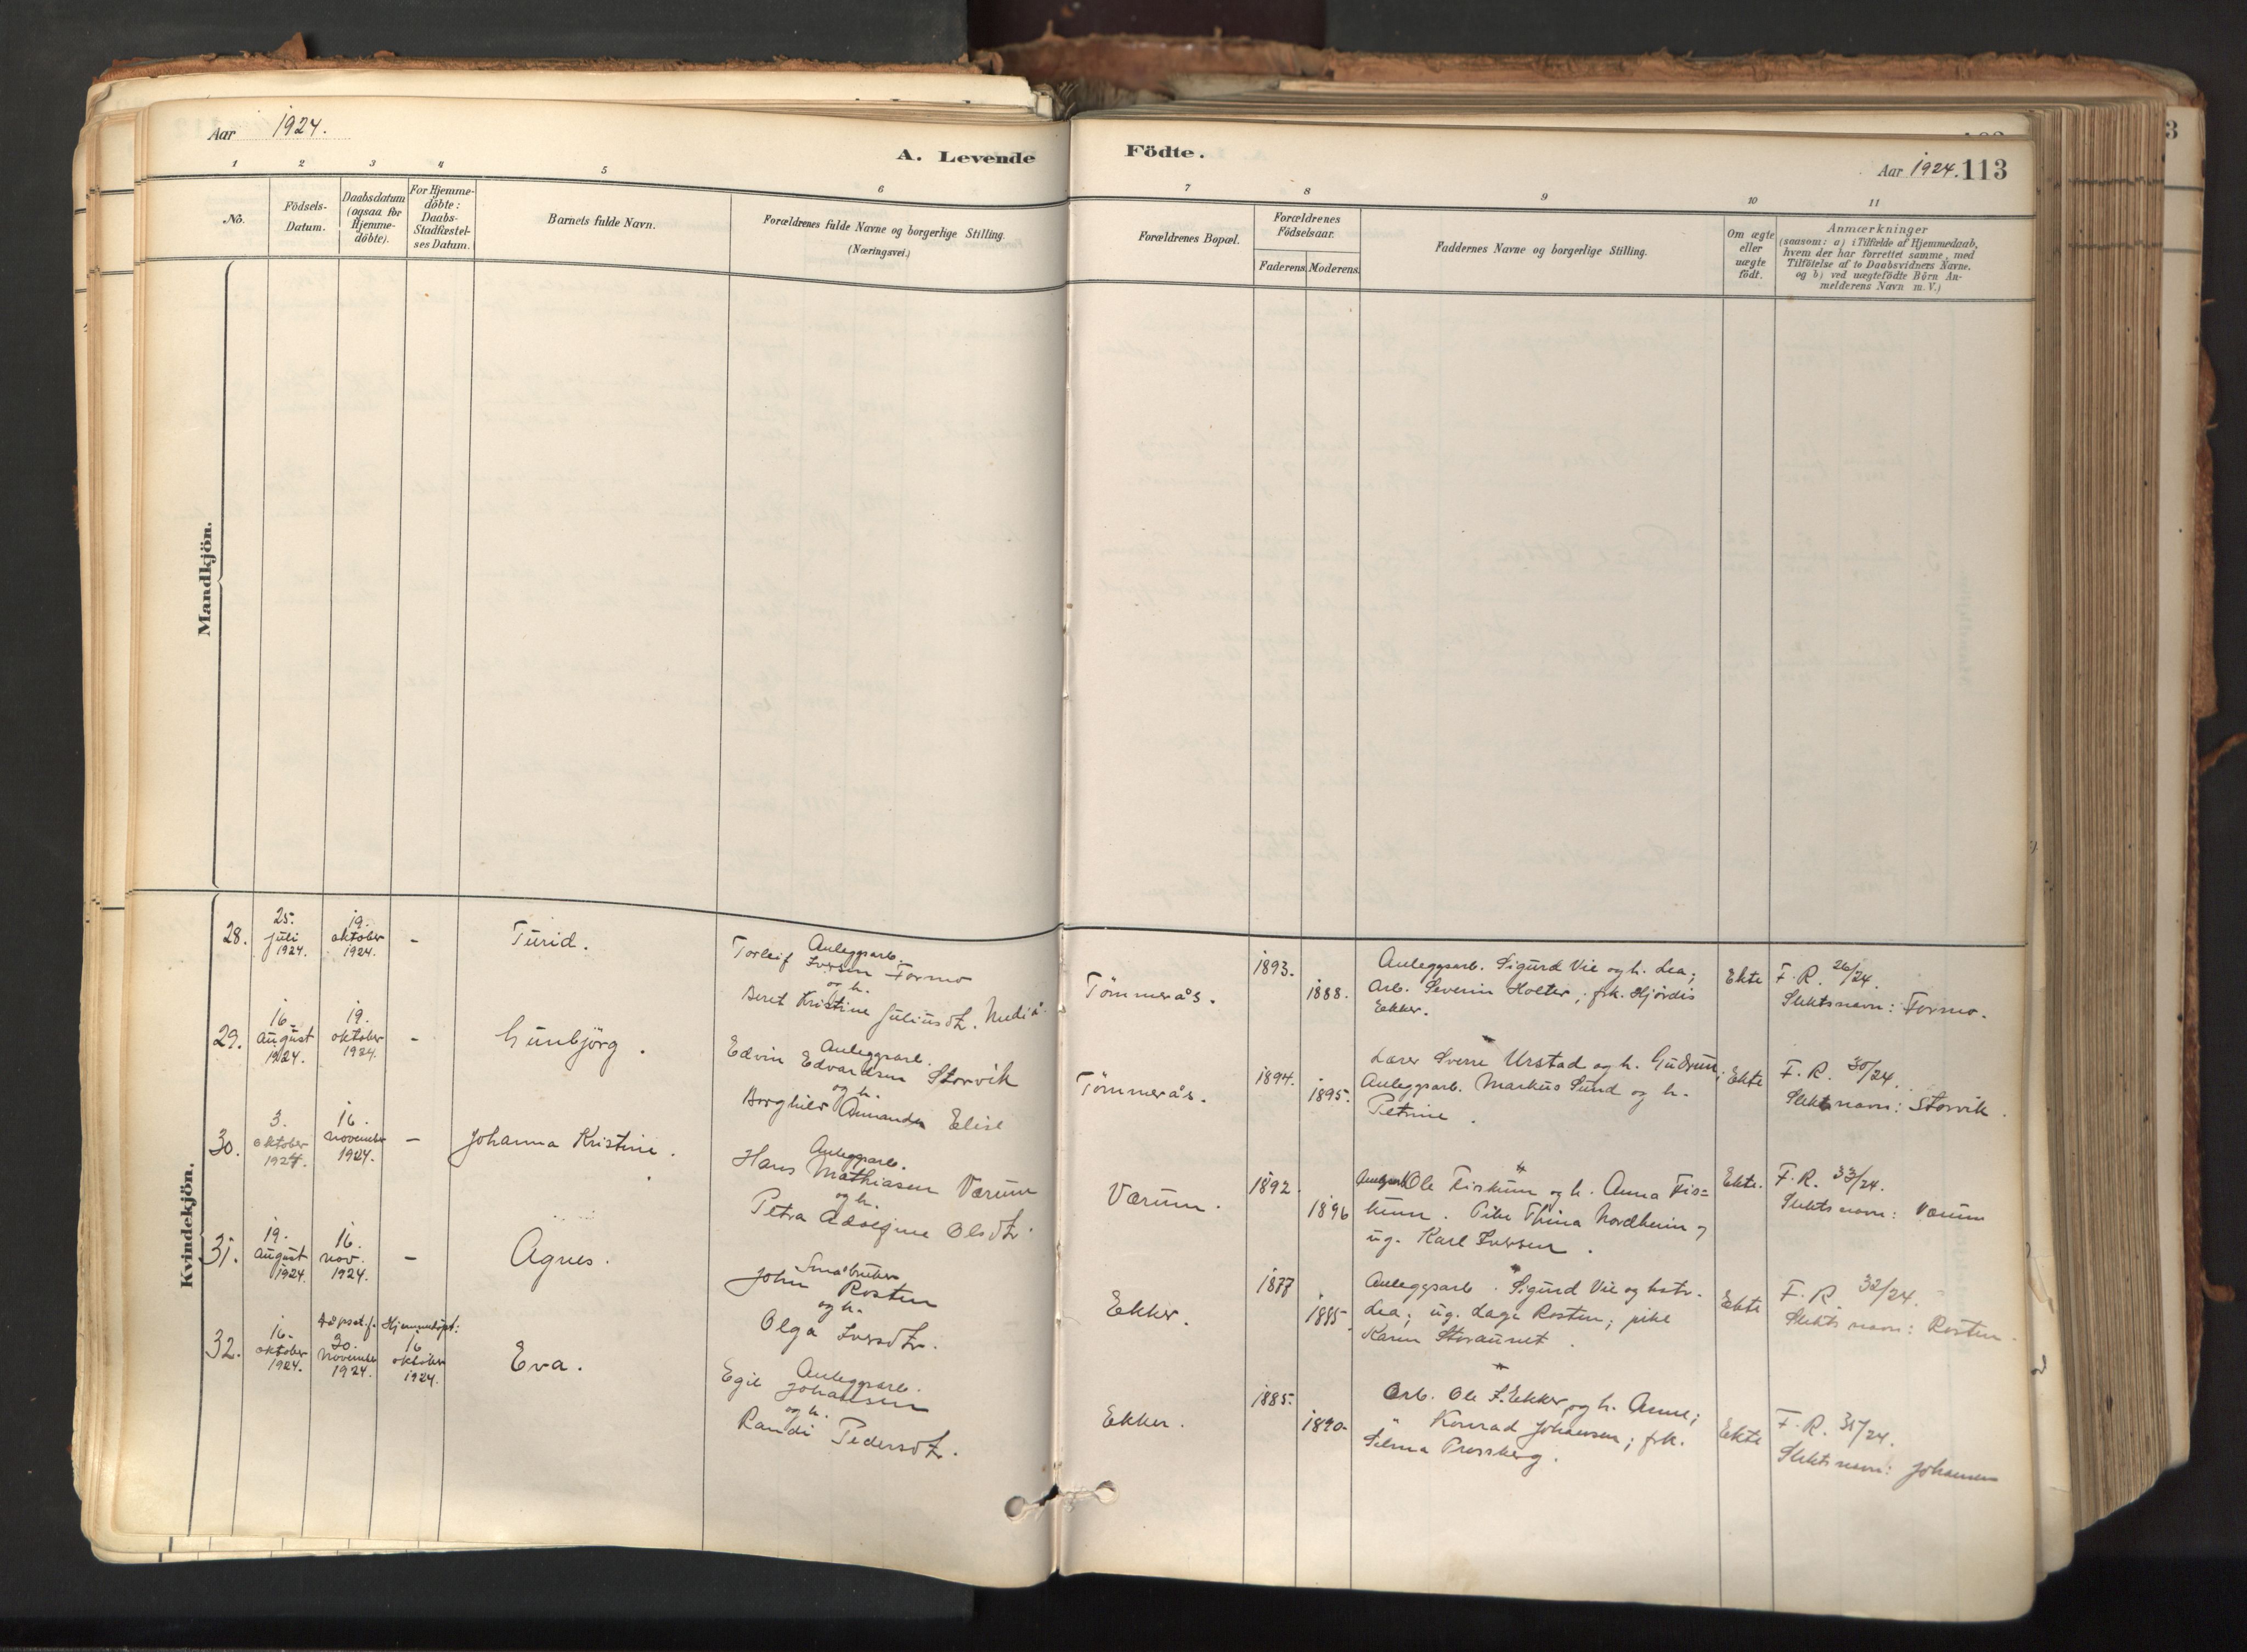 Aar 1924.
A. Levende Födte.
Aar 1924. 113
1 2 3 4 5 6 7 8 9 10 11
No.
Födsels-
Datum.
Daabsdatum
(ogsaa for
Hjemme-
döbte).
For Hjemme-
döbte:
Daabs-
Stadfæstel-
ses Datum.
Barnets fulde Navn.
Forældrenes fulde Navne og borgerlige Stilling.
(Næringsvei.)
Forældrenes Bopæl.
Forældrenes
Födselsaar.
Faderens. Moderens.
Faddernes Navne og borgerlige Stilling.
Om ægte
eller
uægte
födt.
Anmærkninger
(saasom: a) i Tilfælde af Hjemmedaab,
hvem der har forrettet samme, med
Tilföielse af to Daabsvidners Navne.
og b) ved uægtefödte Börn An-
melderens Navn m. V.)
Mandkjön.
Kvindekjön.
28.
25.
juli
1924.
19.
oktober
1924.
-
Turid.
Anleggsarb.
Torleif Iversen Formo
og h.
Beret Kristine Juliusdt. Mediå.
Tömmerås.
1893.
1888.
Anleggsarb. Sigurd Vie og h. Lea;
Arb. Severin Holter; frk. Hjördis
Ekker.
Ekte
F. R. 26/24.
Slektsnavn: Formo.
29.
16.
August
1924.
19.
oktober
1924.
-
Gunbjörg.
Anleggsarb.
Edvin Edvardsen Storvik
og h.
Borghild Amanda Elise
Tömmerås.
1894.
1895.
Lærer Sverre Urstad og h. Gudrun;
Anleggsarb. Markus Sund og h.
Petrine.
Ekte
F. R. 30/24.
Slektsnavn: Storvik.
30.
3.
oktober
1924.
16.
november
1924.
-
Johanna Kristine.
Anleggsarb.
Hans Mathiasen Værum
og h.
Petra Adolfine Olsdtr.
Værum.
1892.
1896
Anleggsarb Ole Fiskum og h. Anna Fis=
kum. Pike Thina Nordheim og
ug. Karl Iversen.
Ekte.
F. R. 33/24.
Slektsnavn: Værum
31.
19.
August
1924.
16.
nov.
1924.
-
Agnes.
Småbruker
John Rosten
og h.
Olga Iversdtr.
Ekker.
1877
1885.
Anleggsarb. Sigurd Vie og hstr.
Lea; ug. Dage Rosten; pike
Karen Storaunet.
Ekte
F. R 32/24.
Slektsnavn: Rosten.
32.
16.
oktober
1924.
30.
November
1924.
Hjemmedöpt:
16
oktober
1924.
Eva.
Anleggsarb.
Egil Johansen
og h.
Randi Pedersdtr.
Ekker.
1885.
1890.
Arb. Ole I. Ekker og h. Anne;
" Konrad Johansen; frk.
Selma Pressberg.
Ekte
F. R. 31/24.
Slektsnavn: Johansen